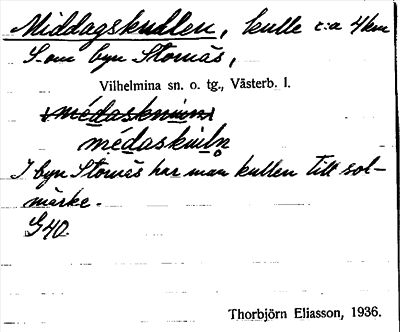 Middagskullen, kulle c:a 4 km
S om byn Stornäs,
Vilhelmina sn. o. tg., Västerb. l.
médaskuln
I byn Stornäs har man kullen till sol-
märke.
G40.
Thorbjörn Eliasson, 1936.